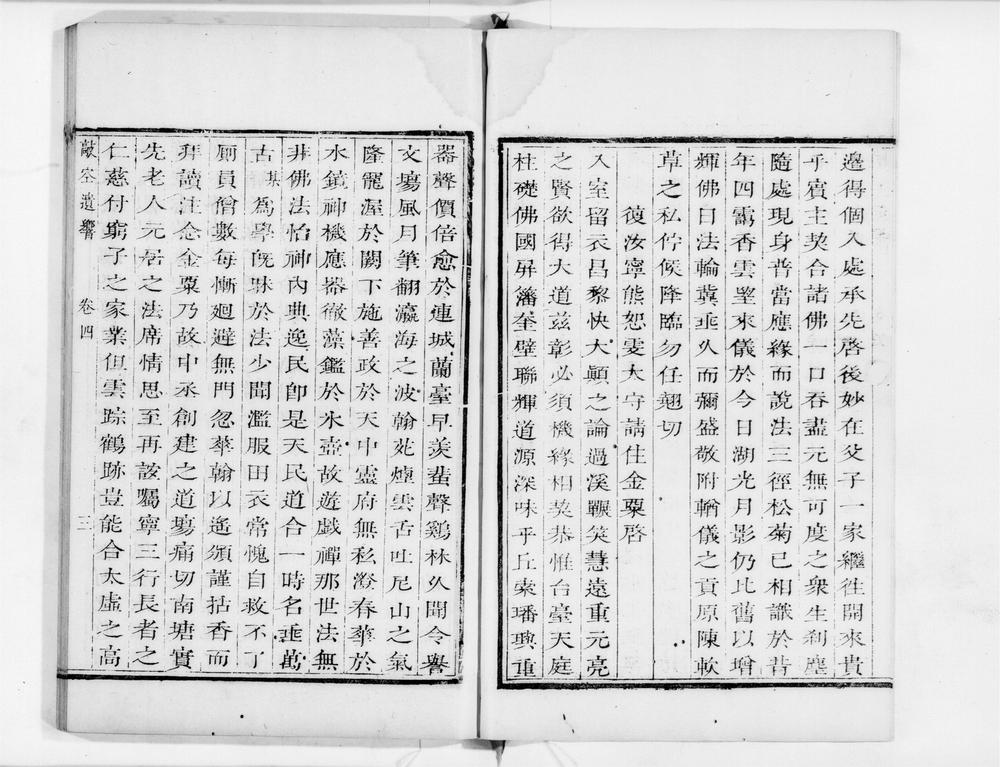 邊得個入處承先啓後妙在父子一家繼往開來貴
乎賓主契合諸佛一口吞盡元無可度之衆生刹塵
隨處現身普當應緣而說法三徑松菊已相識於昔
年四霱香雲望來儀於今日湖光月影仍比舊以增
輝佛日法輪冀亟久而彌盛敬附輶儀之貢原陳軟
草之私佇候降臨勿任翹切
復汝寧熊恕雯大守請住金粟啓
入室留衣昌黎快大顛之論過溪囅笑慧遠重元亮
之賢欲得大道玆彰必須機緣相契恭惟台臺天庭
柱礎佛國屏籓奎壁聯輝道源深味乎丘索璠璵重
器聲價倍愈於連城蘭臺早羨蜚聲鷄林久聞令譽
文塲風月筆翻瀛海之波翰苑煙雲舌吐尼山之氣
隆寵渥於闕下施善政於天中靈府無私澄春華於
水鏡神機應器徹藻鑑於氷壺故遊戲禪那世法無
非佛法怡神內典逸民卽是天民道合一時名垂萬
古某爲學旣踈於法少聞濫服田衣常愧自救不了
厠員僧數每慚廻避無門忽華翰以遙頒謹拈香而
拜讀注念金粟乃故中丞創建之道塲痛切南塘實
先老人元居之法席情思至再該囑寧三行長者之
仁慈付窮子之家業但雲踪鶴跡豈能合太虛之高
敲空遺響 卷四 三